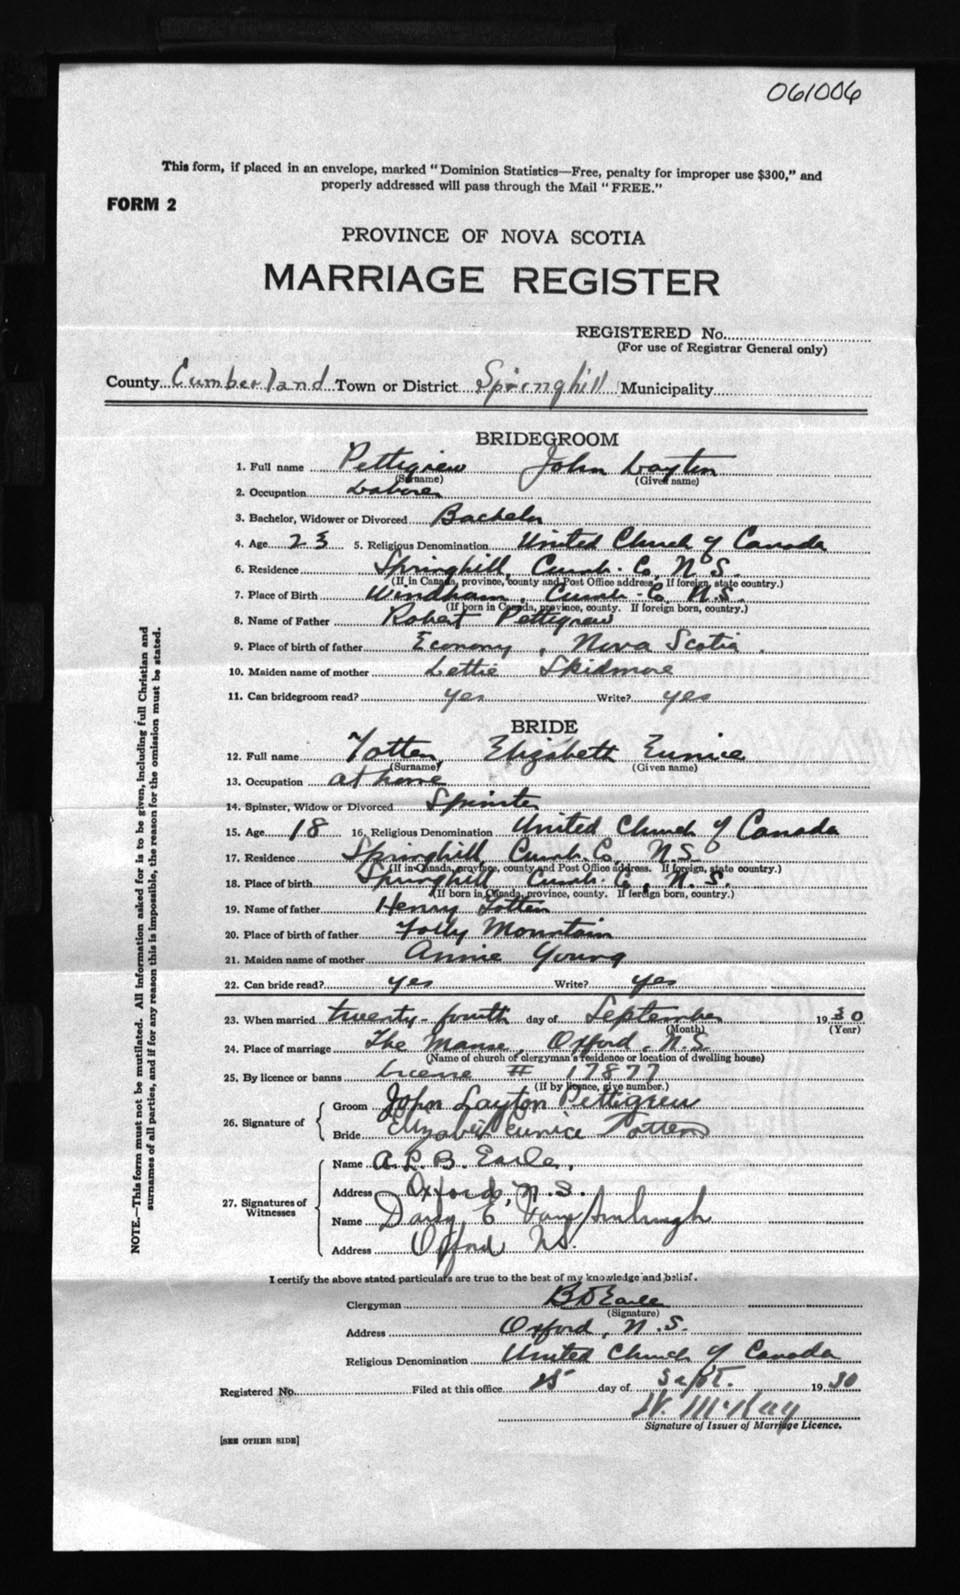 061006
This form, if placed in an envelope, marked "Dominion Statistics—Free, penalty for improper use $300," and
properly addressed will pass through the Mail "FREE."
FORM 2
PROVINCE OF NOVA SCOTIA
MARRIAGE REGISTER
REGISTERED No.
(For use of Registrar General only)
County Cumberland Town or District Springhill Municipality
BRIDEGROOM
1. Full name Pettigrew John Layton
(Surname) (Given name)
2. Occupation Laborer
3. Bachelor, Widower or Divorced Bachelor
4. Age 23 5. Religious Denomination United Church of Canada
6. Residence Springhill, Cumb. Co, N.S.
(If in Canada, province, county and Post Office address. If foreign, state country.)
7. Place of Birth Windham, Cumb. Co N.S.
(If born in Canada, province, county. If foreign born, country.)
8. Name of Father Robert Pettigrew
9. Place of birth of father Economy, Nova Scotia.
10. Maiden name of mother Lettie Skidmore
11. Can bridegroom read? yes Write? yes
BRIDE
12. Full name Totten, Elizabeth Eunice
(Surname) (Given name)
13. Occupation at home
14. Spinster, Widow or Divorced Spinster
15. Age 18 16. Religious Denomination United Church of Canada
17. Residence Springhill, Cumb. Co, N.S.
(If in Canada, province, county and Post Office address. If foreign, state country.)
18. Place of birth Springhill Cumb. Co, N.S.
(If born in Canada, province, county. If foreign born, country.)
19. Name of father Henry Totten
20. Place of birth of father Folly Mountain
21. Maiden name of mother Annie Young
22. Can bride read? yes Write? yes
23. When married twenty-fourth day of September 1930
(Month) (Year)
24. Place of marriage The Manse, Oxford, N.S.
(Name of church of clergyman's residence or location of dwelling house)
25. By licence or banns license # 17877
(If by licence, give number.)
26. Signature of
Groom John Layton Pettigrew
Bride Elizabeth Eunice Totten
27. Signatures of Witnesses
Name A. L. B. Earle,
Address Oxford, N.S.
Name E
Address Oxford NS.
I certify the above stated particulars are true to the best of my knowledge and belief.
Clergyman B D Earle
(Signature)
Address Oxford, N.S.
Religious Denomination United Church of Canada
Registered No. Filed at this office 25 day of Sept. 1930
W. McKay
Signature of Issuer of Marriage Licence.
[SEE OTHER SIDE]
NOTE.—This form must not be mutilated. All information asked for is to be given, including full Christian and
surnames of all parties, and if for any reason this is impossible, the reason for the omission must be stated.